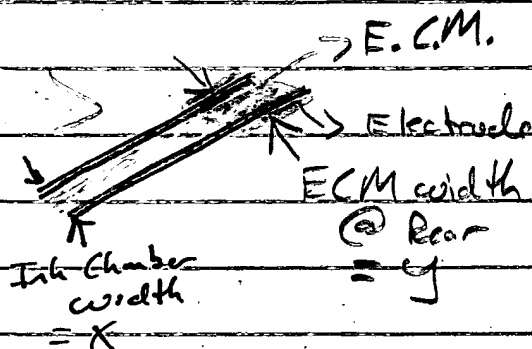 E.C.M.
Electrode
ECM width
@ Rear
= y
Ink Chamber
width
= x